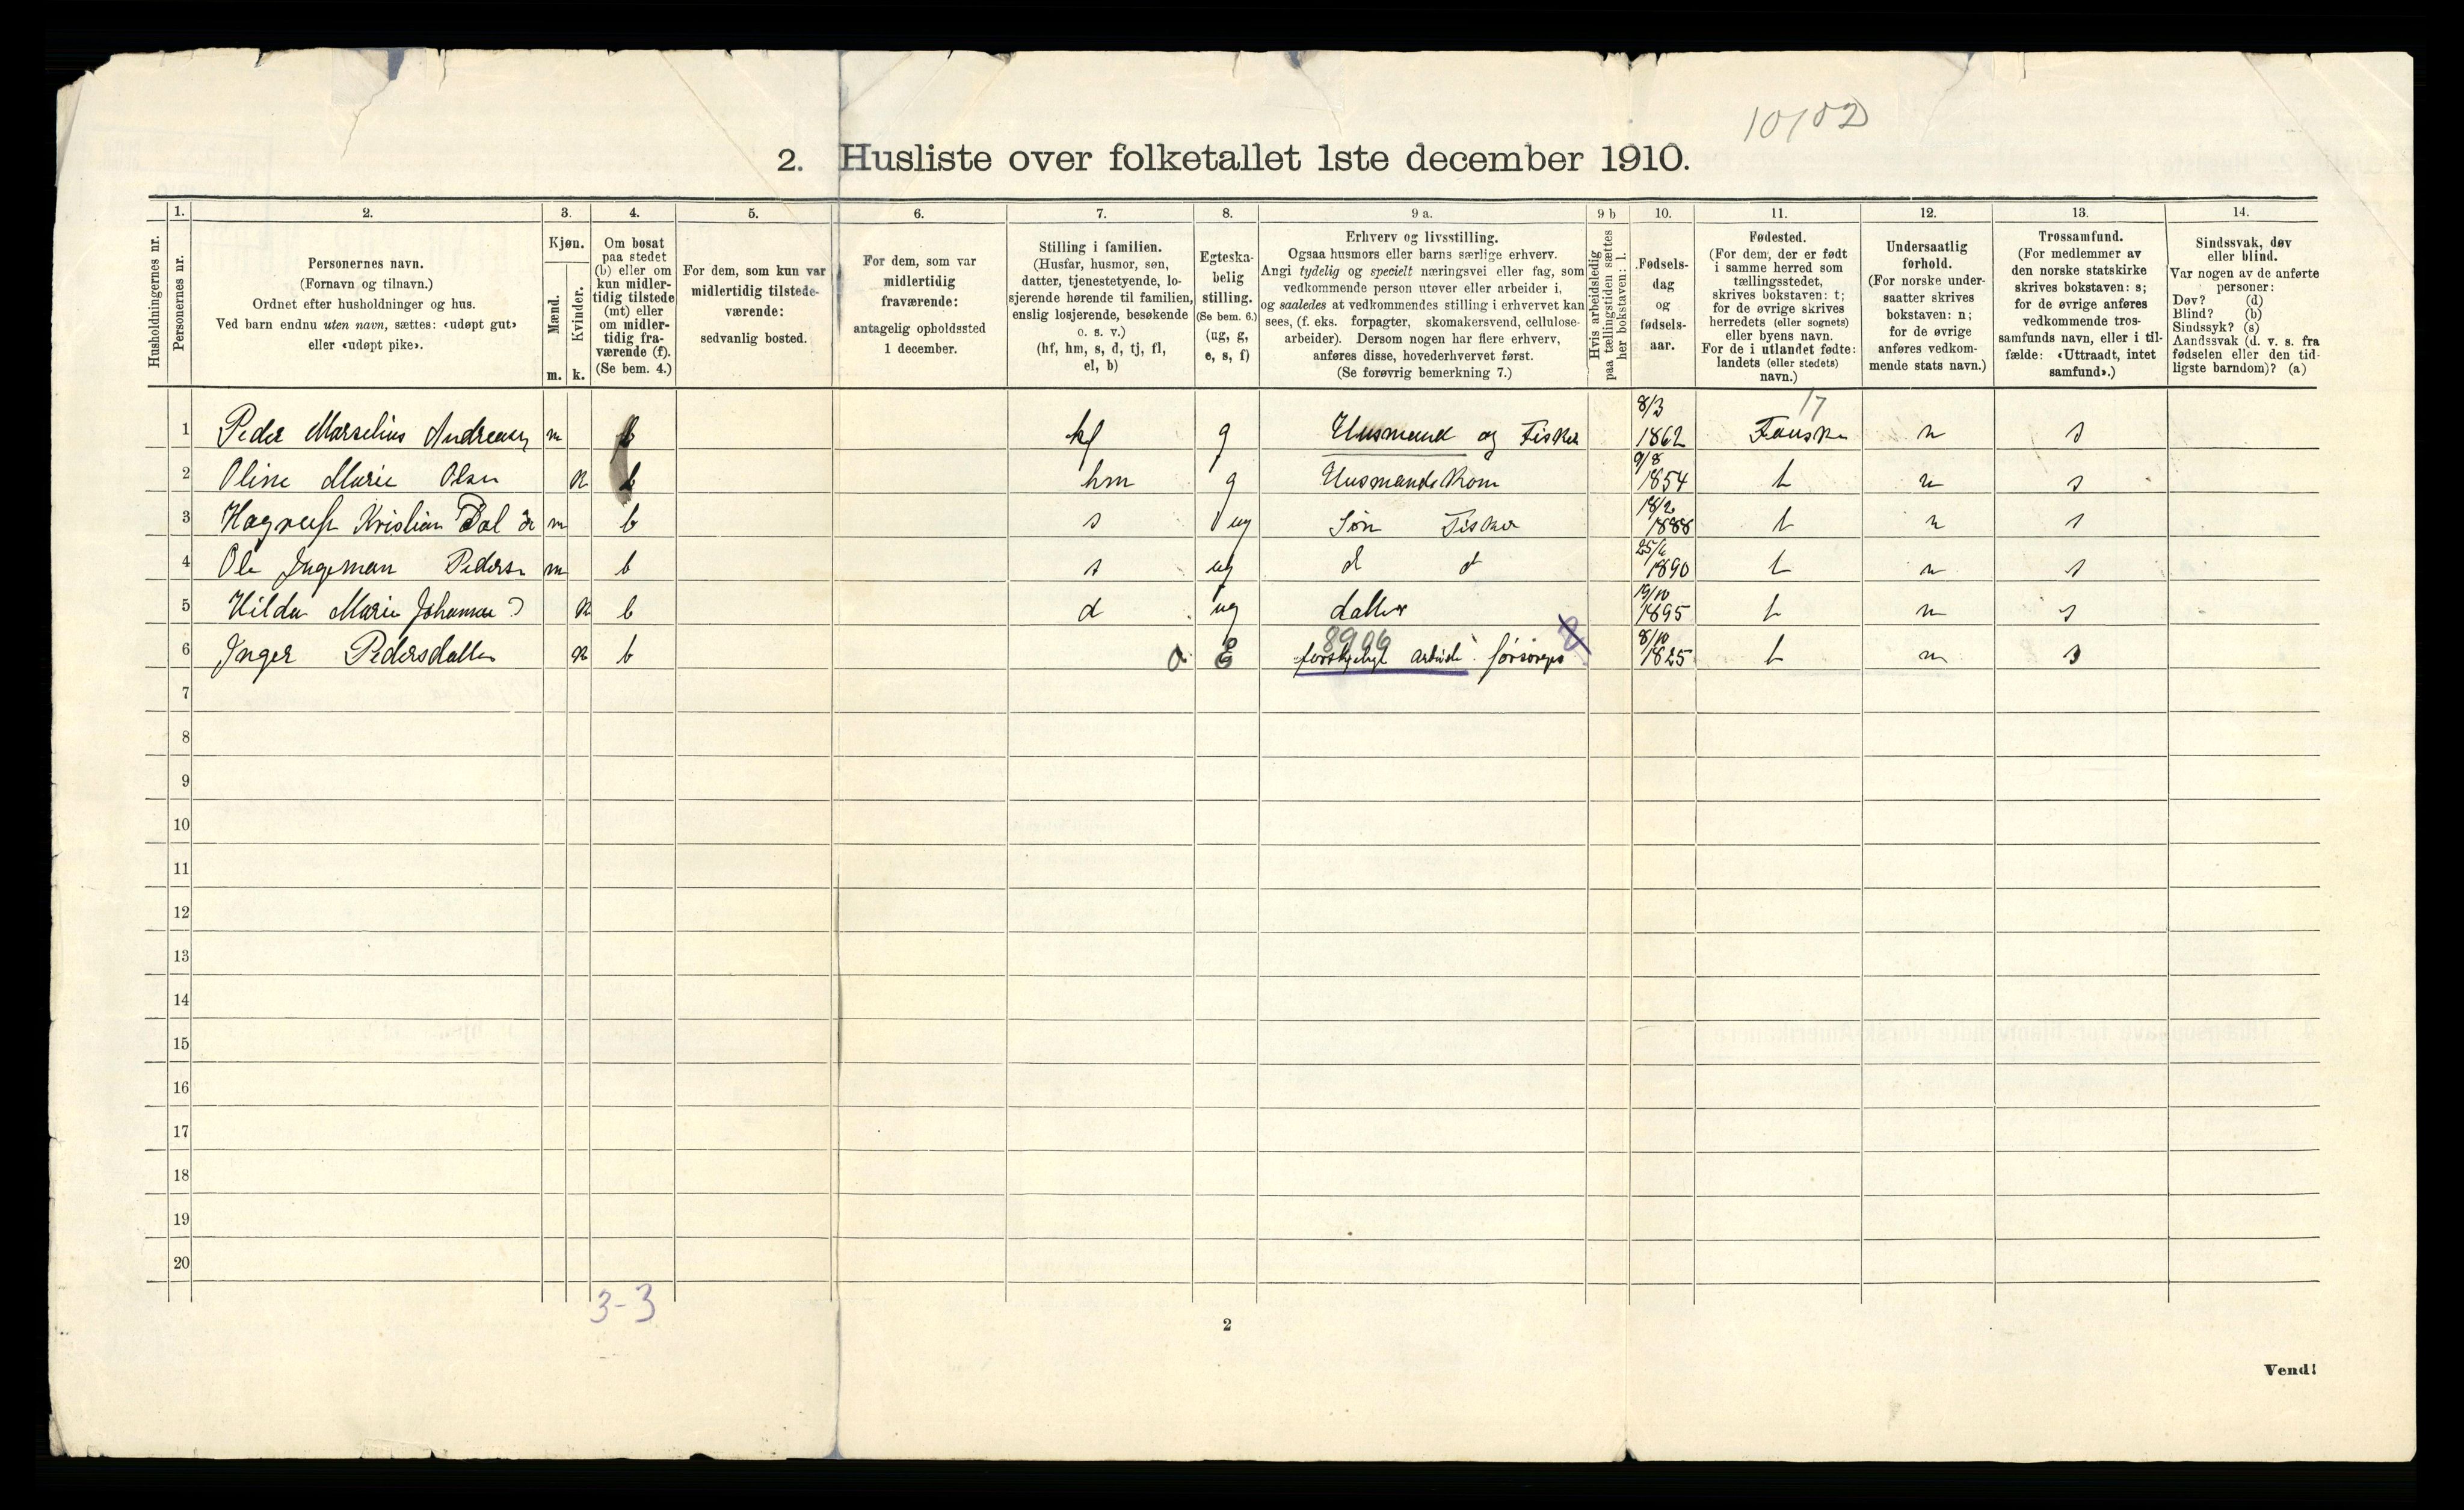 10102
2. Husliste over folketallet 1ste december 1910.
1. 2. 3. 4. 5. 6. 7. 8. 9 a. 9 b 10. 11. 12. 13. 14.
Husholdningernes nr.
Personernes nr.
Personernes navn.
(Fornavn og tilnavn.)
Ordnet efter husholdninger og hus.
Ved barn endnu uten navn, sættes: «udøpt gut»
eller «udøpt pike».
Kjøn.
Mænd.
Kvinder.
m. k.
Om bosat
paa stedet
(b) eller om
kun midler-
tidig tilstede
(mt) eller
om midler-
tidig fra-
værende (f).
(Se bem. 4.)
For dem, som kun var
midlertidig tilstede-
værende:
sedvanlig bosted.
For dem, som var
midlertidig
fraværende:
antagelig opholdssted
1 december.
Stilling i familien.
(Husfar, husmor, søn,
datter, tjenestetyende, lo-
sjerende hørende til familien,
enslig losjerende, besøkende
o. s. v.)
(hf, hm, s, d, tj, fl,
el, b)
Egteska-
belig
stilling.
(Se bem. 6.)
(ug, g,
e, s, f)
Erhverv og livsstilling.
Ogsaa husmors eller barns særlige erhverv.
Angi tydelig og specielt næringsvei eller fag, som
vedkommende person utøver eller arbeider i,
og saaledes at vedkommendes stilling i erhvervet kan
sees, (f. eks. forpagter, skomakersvend, cellulose-
arbeider). Dersom nogen har flere erhverv,
anføres disse, hovederhvervet først.
(Se forøvrig bemerkning 7.)
Hvis arbeidsledig
paa tællingstiden sættes
her bokstaven: l.
Fødsels-
dag
og
fødsels-
aar.
Fødested.
(For dem, der er født
i samme herred som
tællingsstedet,
skrives bokstaven: t;
for de øvrige skrives
herredets (eller sognets)
eller byens navn.
For de i utlandet fødte:
landets (eller stedets)
navn.)
Undersaatlig
forhold.
(For norske under-
saatter skrives
bokstaven: n;
for de øvrige
anføres vedkom-
mende stats navn.)
Trossamfund.
(For medlemmer av
den norske statskirke
skrives bokstaven: s;
for de øvrige anføres
vedkommende tros-
samfunds navn, eller i til-
fælde: «Uttraadt, intet
samfund».)
Sindssvak, døv
eller blind.
Var nogen av de anførte
personer:
Døv? (d)
Blind? (b)
Sindssyk? (s)
Aandssvak (d. v. s. fra
fødselen eller den tid-
ligste barndom)? (a)
8/3 17
1 Peder Marselius Andreasen m b hf g Husmand og Fisker 1862 Fauske n s
9/8
2 Oline Marie Olsen k b hm g Husmandskone 1854 t n s
18/2
3 Kristian m b s ug Søn Fisker 1888 t n s
25/6
4 Ole Ingeman Pedersn m b s ug d d 1890 t n s
19/10
5 Hilda Marie Johanna k b d ug datter 1895 t n s
8906 8 8/10
6 Inger Pedersdatter k b E arbeide forsørges 1825 t n s
7
8
9
10
11
12
13
14
15
16
17
18
19
20
3-3
2
Vend!